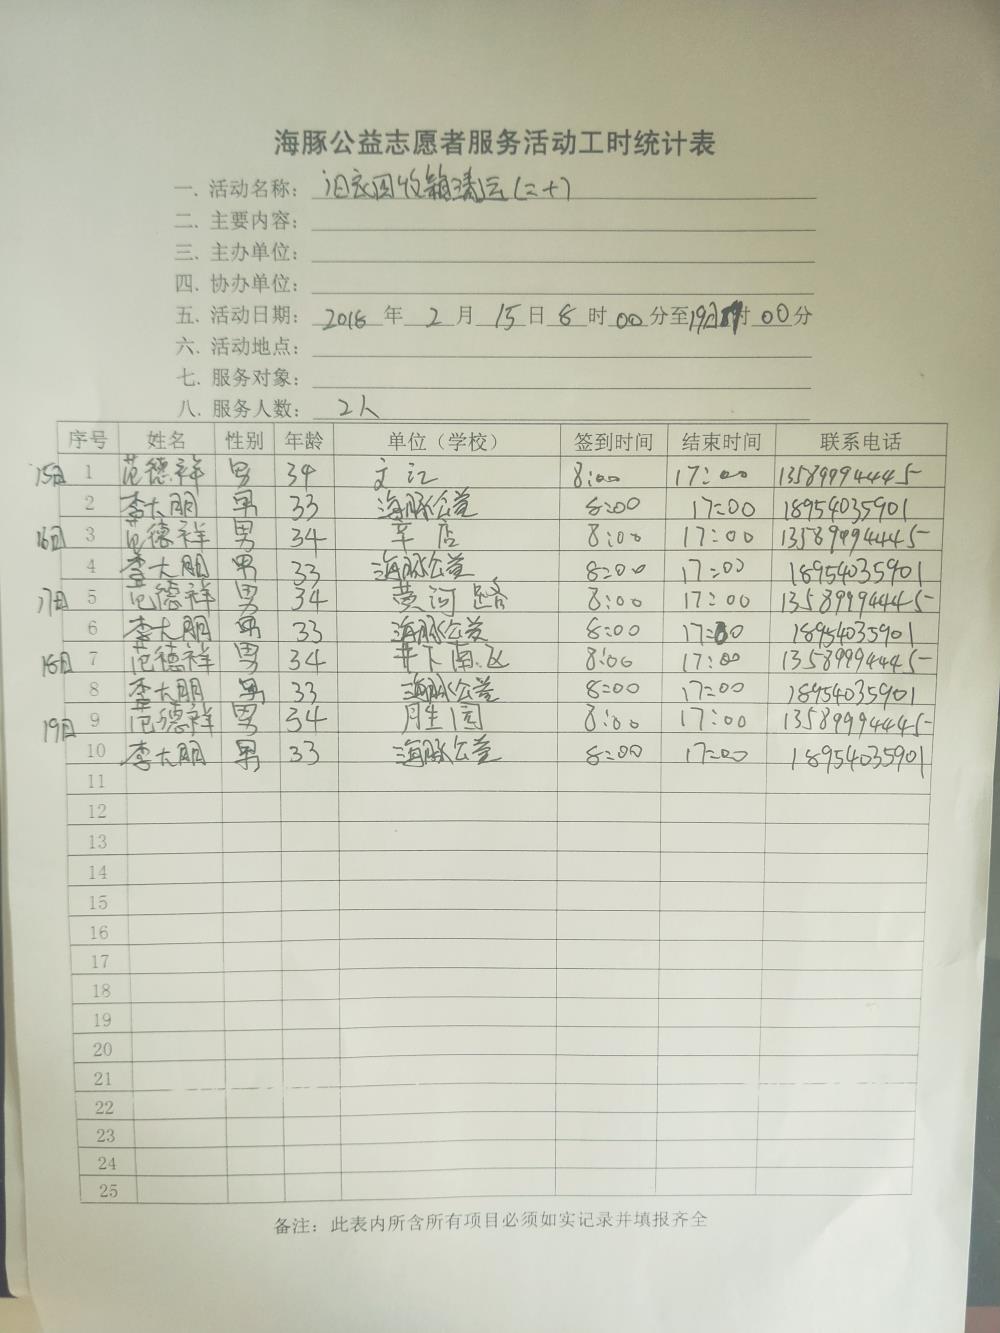 海豚公益志愿者服务活动工时统计表
一. 活动名称: 旧衣回收箱清运(二十)
二. 主要内容:
三. 主办单位:
四. 协办单位:
五. 活动日期: 2018 年 2 月 15 日 8 时 00 分至 19日 17时 00 分
六. 活动地点:
七. 服务对象:
八. 服务人数: 2人
序号 姓名 性别 年龄 单位（学校） 签到时间 结束时间 联系电话
15日 1 范德祥 男 34 文江 8:00 17:00 13589994445
2 李大朋 男 33 海豚公益 8:00 17:00 18954035901
16日 3 范德祥 男 34 辛店 8:00 17:00 13589994445
4 李大朋 男 33 海豚公益 8:00 17:00 18954035901
17日 5 范德祥 男 34 黄河路 8:00 17:00 13589994445
6 李大朋 男 33 海豚公益 8:00 17:00 18954035901
18日 7 范德祥 男 34 井下南区 8:00 17:00 13589994445
8 李大朋 男 33 海豚公益 8:00 17:00 18954035901
19日 9 范德祥 男 34 胜园 8:00 17:00 13589994445
10 李大朋 男 33 海豚公益 8:00 17:00 18954035901
11
12
13
14
15
16
17
18
19
20
21
22
23
24
25
备注: 此表内所含所有项目必须如实记录并填报齐全